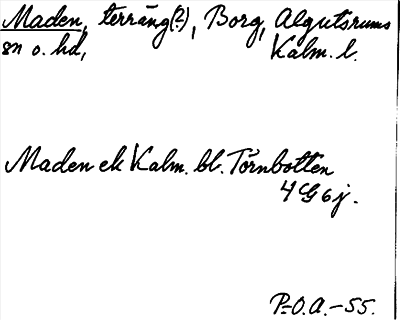 Maden, terräng(?), Borg, Algutsrums
sn o. hd, Kalm. l.
Maden ek Kalm. bl. Törnbotten
4 G 6 j.
P-O.A.-55.